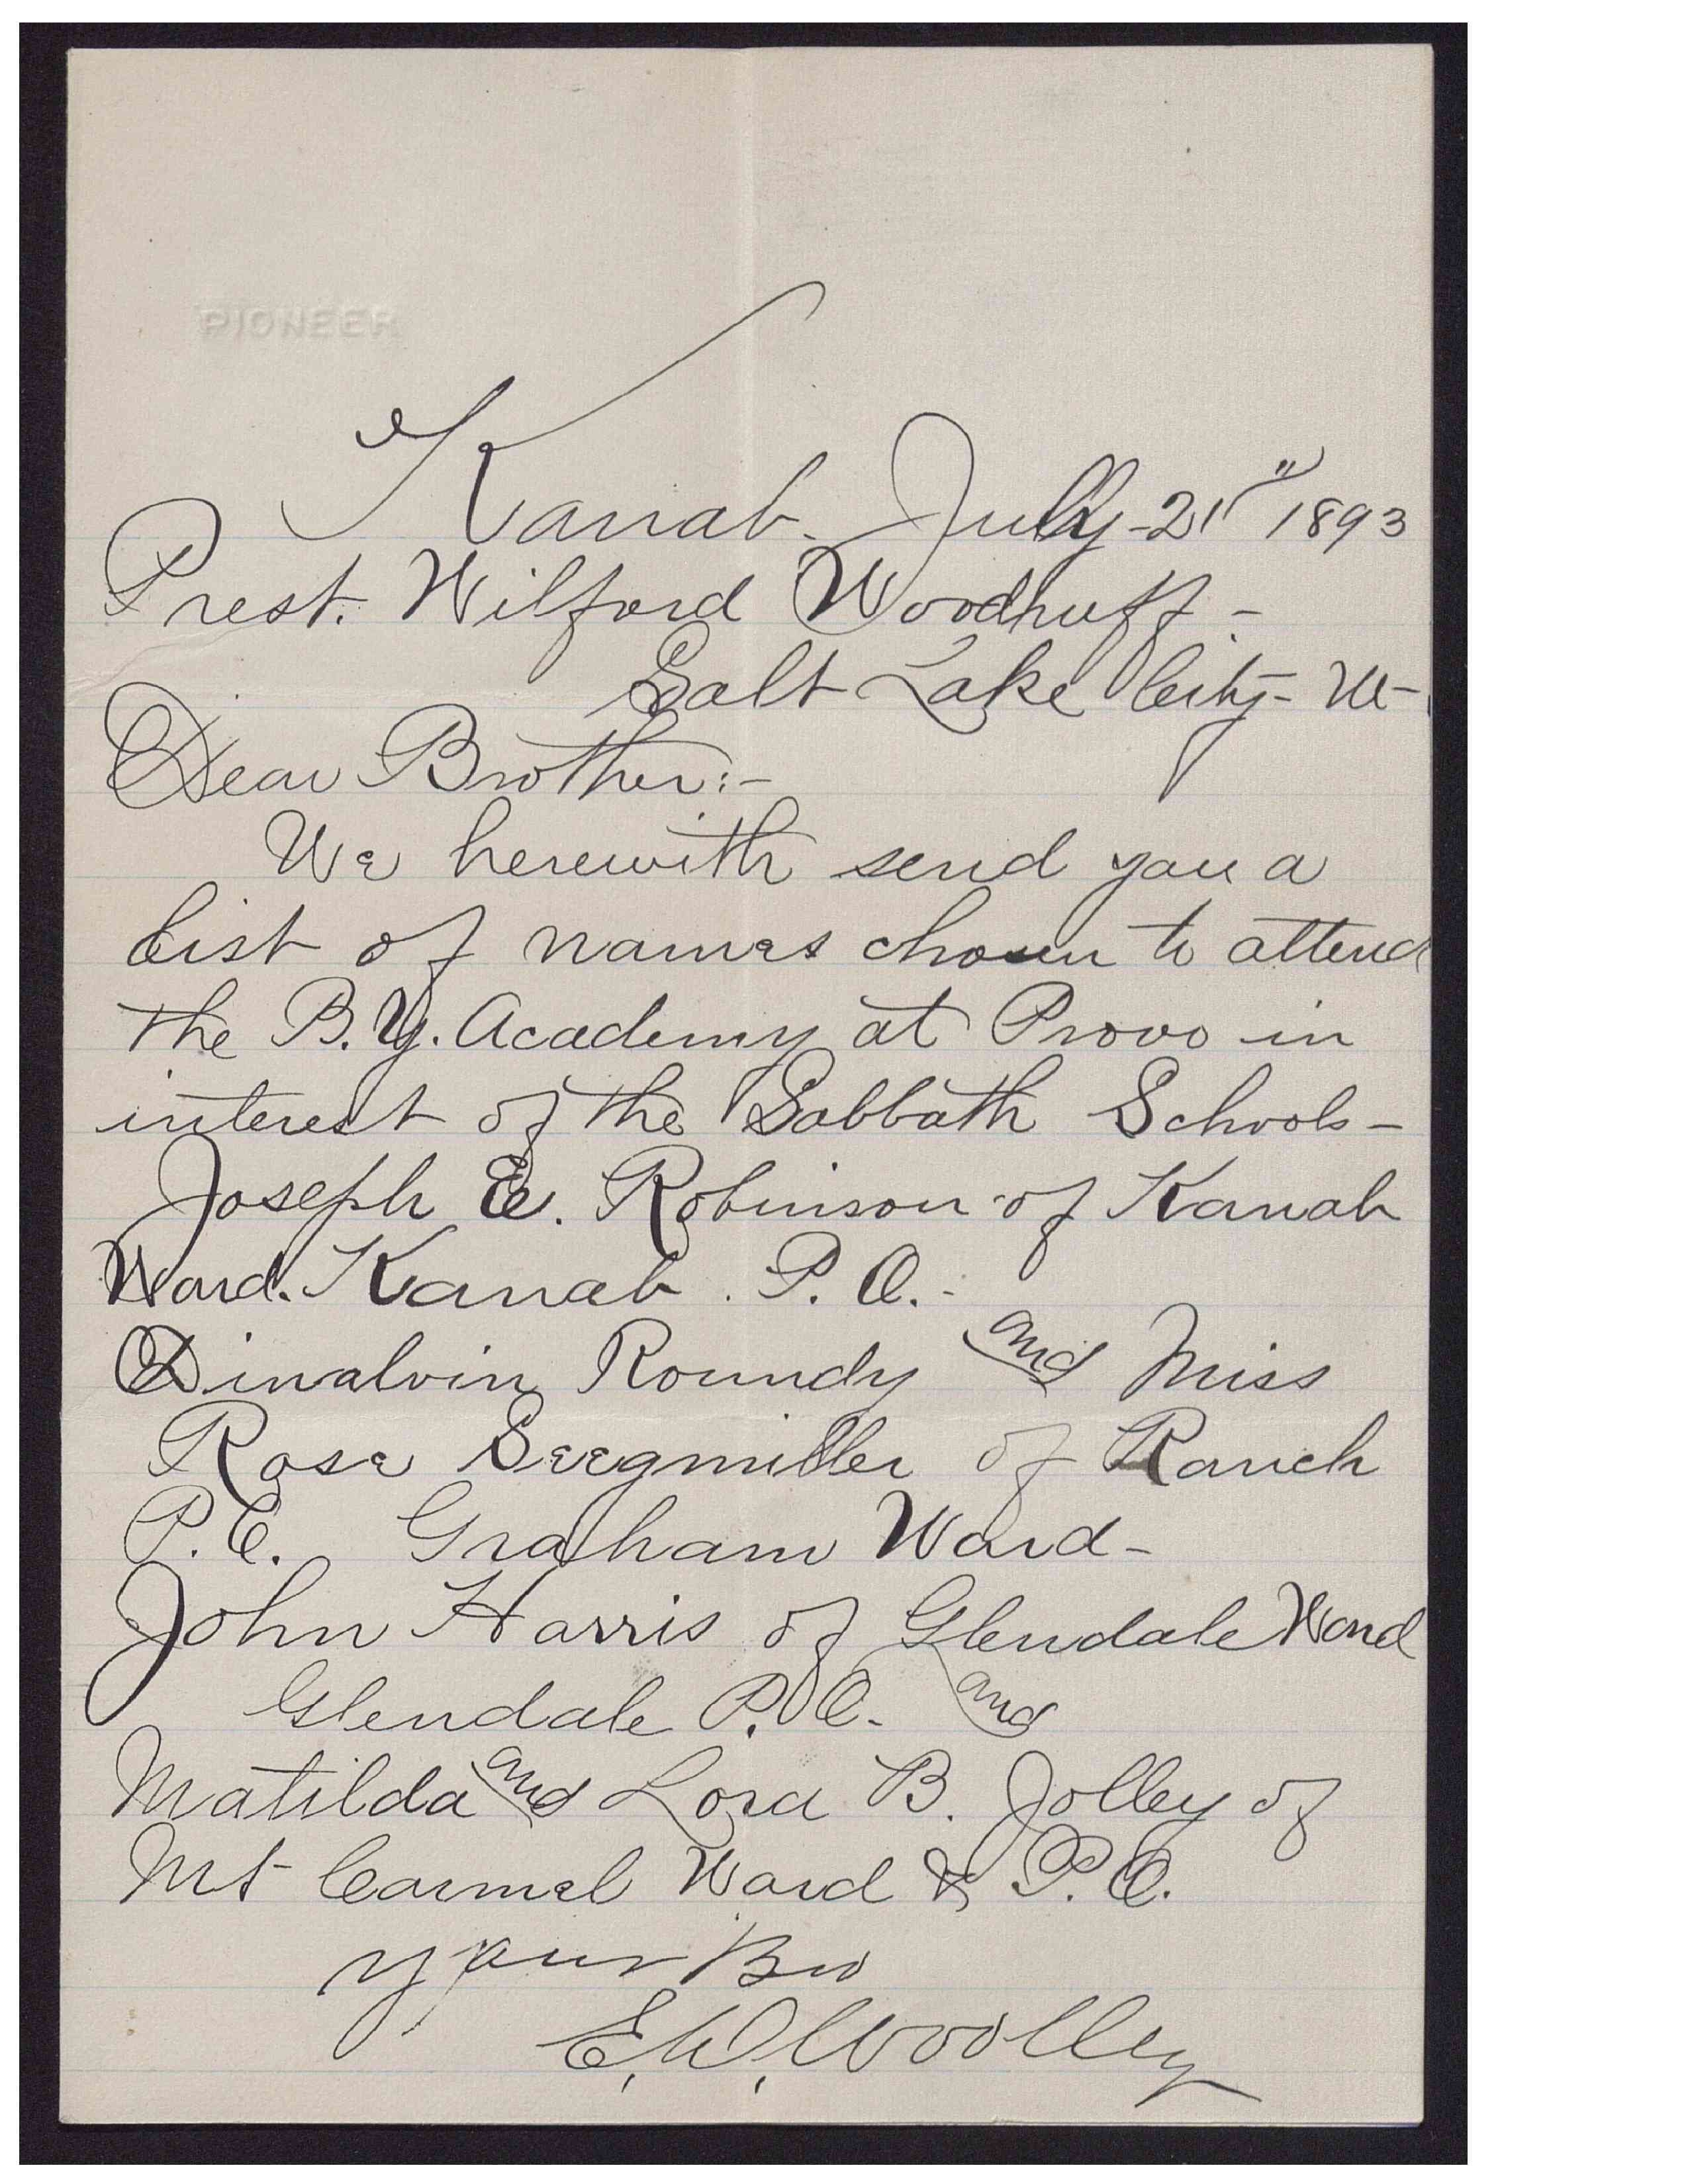 PIONEER
Kanab - July - 21" 1893
Prest. Wilford Woodruff -
Salt Lake City - Ut -
Dear Brother:-
We herewith send you a
list of names chosen to attend
the B. Y. Academy at Provo in
interest of the Sabbath Schools -
Joseph E. Robinson of Kanab
Ward. Kanab. P. O. -
Roundy and Miss
Rose Seegmiller of Ranch
P. O. Graham Ward -
John Harris of Glendale Ward
Glendale P. O. and
Matilda and Lora B. Jolley of
Mt Carmel Ward & P. O.
Your Bro
E. D. Woolley